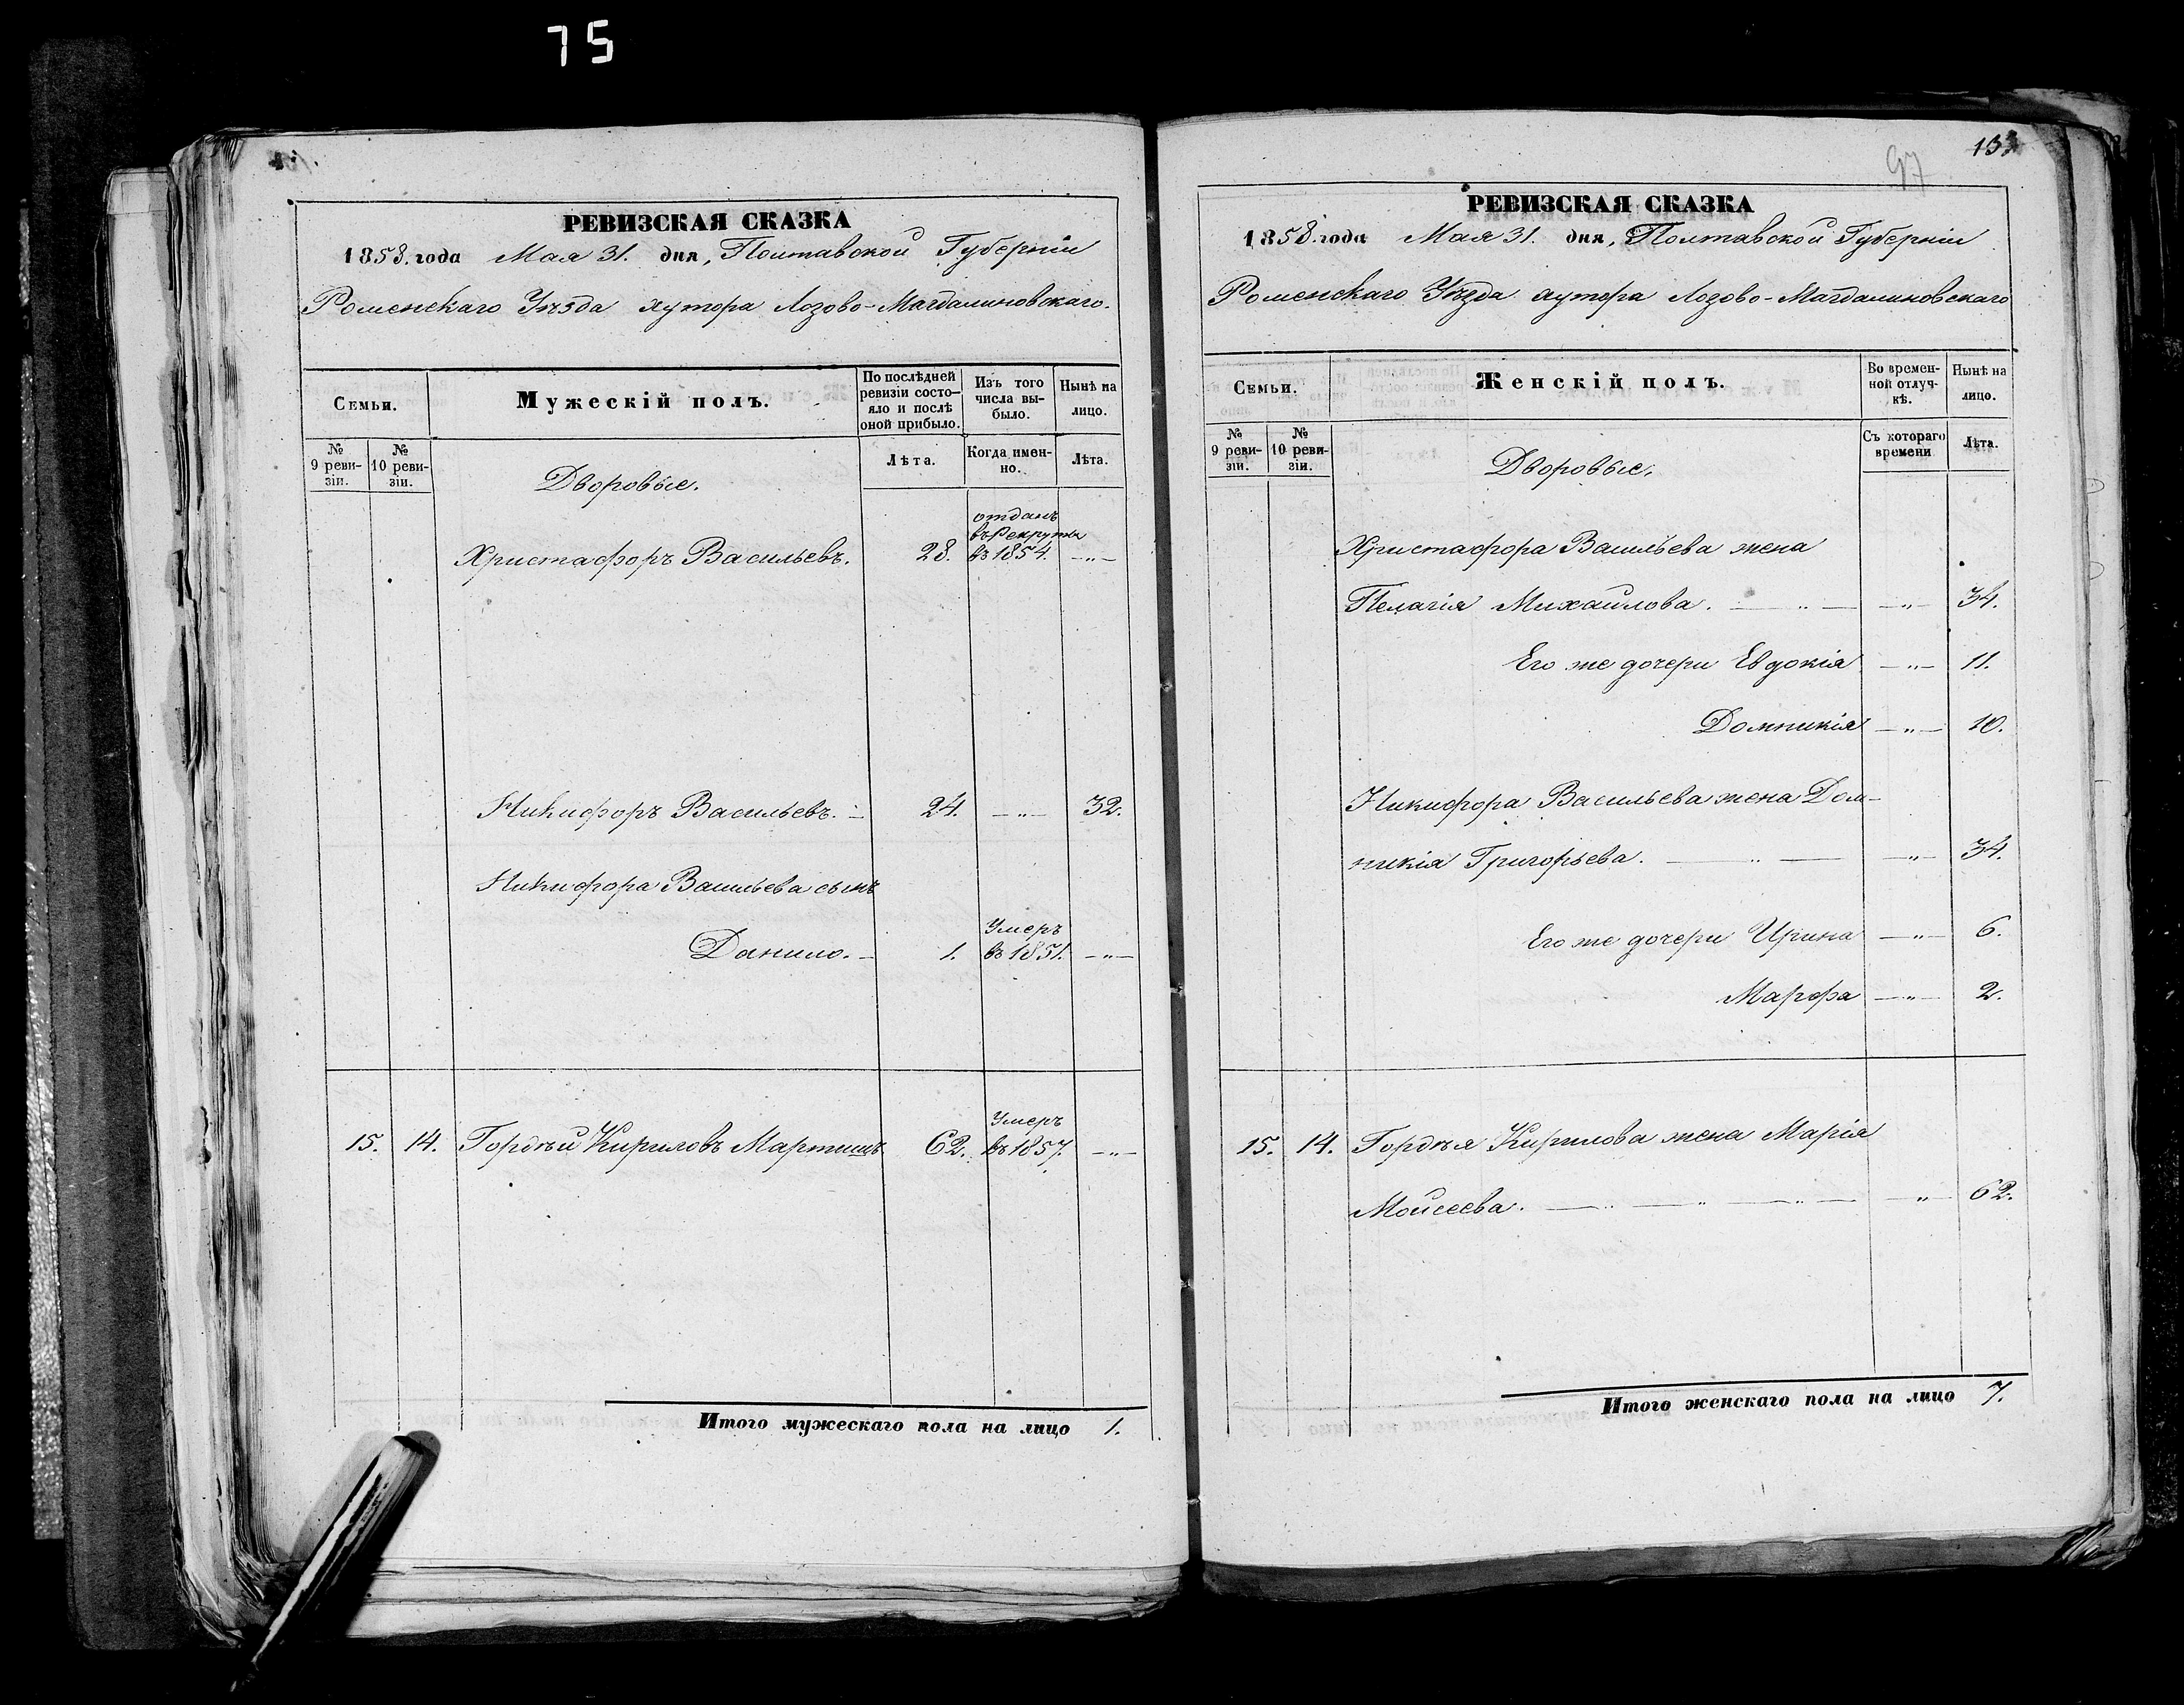 75
РЕВИЗСКАЯ СКАЗКА
1858. года Мая 31. дня, Полтавской Губерніи
Роменскаго Уѣзда хутора Лозово-Магдалиновскаго.
Семьи.
Мужескій полъ.
По послѣдней ревизіи состояло и послѣ оной прибыло.
Изъ того числа выбыло.
Нынѣ на лицо.
№ 9 ревизіи.
№ 10 ревизіи.
Лѣта.
Когда именно.
Лѣта.
Дворовые.
отданъ
въ Рекруты
Христафоръ Васильевъ. 28. въ 1854. —"—
Никифоръ Васильевъ. — 24. —"— 32.
Никифора Васильева сынъ
Умеръ
Данило. — 1. въ 1851. —"—
Умеръ
15. 14. Гордѣй Кириловъ Мартишъ 62. въ 1857. —"—
Итого мужескаго пола на лицо 1.
97
РЕВИЗСКАЯ СКАЗКА
1858. года Мая 31. дня, Полтавской Губерніи
Роменскаго Уѣзда хутора Лозово-Магдалиновскаго
Семьи.
Женскій полъ.
Во временной отлучкѣ.
Нынѣ на лицо.
№ 9 ревизіи.
№ 10 ревизіи.
Съ котораго времени
Лѣта.
Дворовые,
Христафора Васильева жена
Пелагія Михайлова. —"— —"— 34.
Его же дочери Евдокія —"— 11.
Домникія —"— 10.
Никифора Васильева жена Дом-
никія Григорьева. —"— —"— 34.
Его же дочери Ирина —"— 6.
Марфа —"— 2.
15. 14. Гордѣя Кирилова жена Марія
Мойсеева. —"—"—"— " — 62.
Итого женскаго пола на лицо 7.